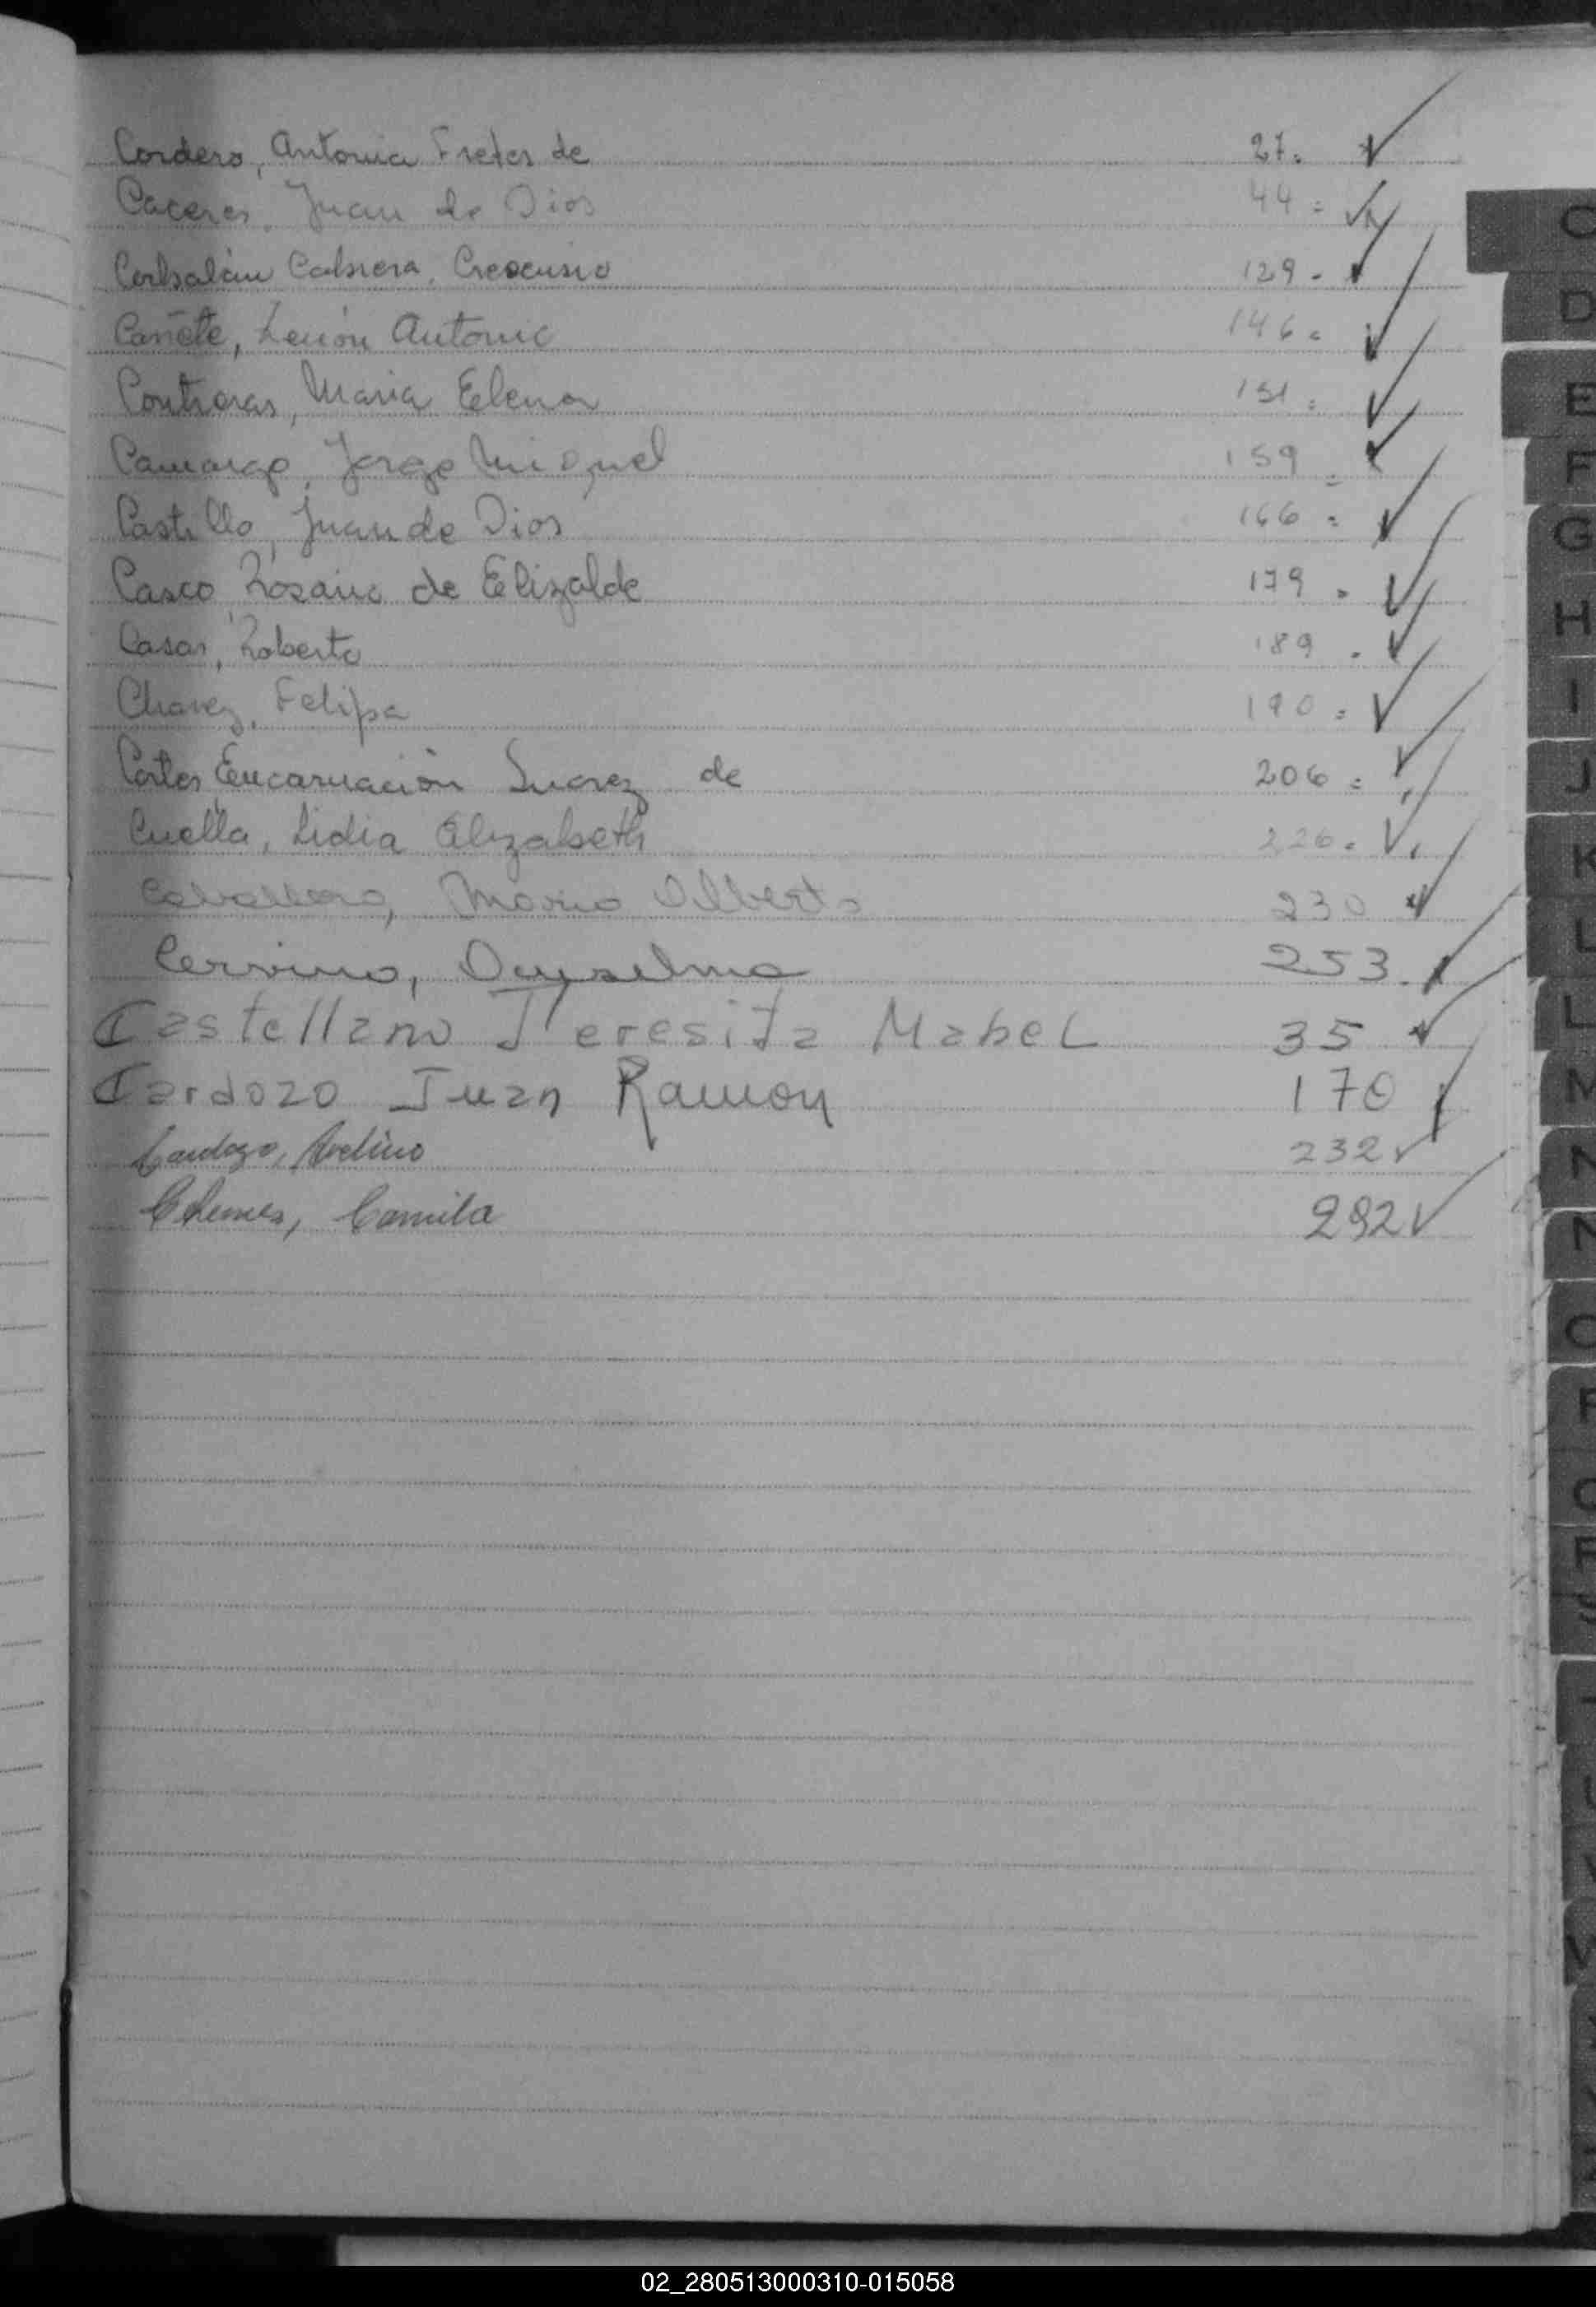 Cordero, Antonia Fretes de 27. ✓
Caceres, Juan de Dios 44 = ✓
Corbalán Cabrera, Crescensio 129 - ✓
Cañete, Zenón Antonio 146 = ✓
Contreras, Maria Elena 151 = ✓
Camargo, Jorge Miguel 159 = ✓
Castillo, Juan de Dios 166 = ✓
Casco, Rosario de Elizalde 179 = ✓
Casas, Roberto 189 = ✓
Chavez, Felipa 190 = ✓
Cortes, Encarnación Suarez de 206 = ✓
Cuella, Lidia Elizabeth 226 = ✓
Caballero, Mario Alberto 230 ✓
Cervino, 253 ✓
Castellano Teresita Mabel 35 ✓
Cardozo Juan Ramon 170 ✓
Cardozo, Avelino 232 ✓
Chemes, Camila 292 ✓
C
D
E
F
G
H
I
J
K
L
L
M
N
N
O
P
Q
R
S
02_280513000310-015058